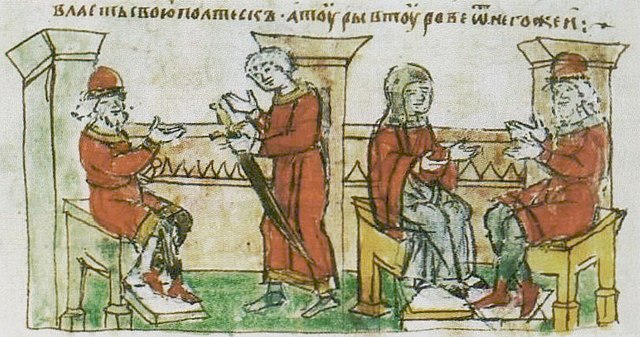 власть свою полтескъ · а тоуры втоурове ѿнегожеи :~